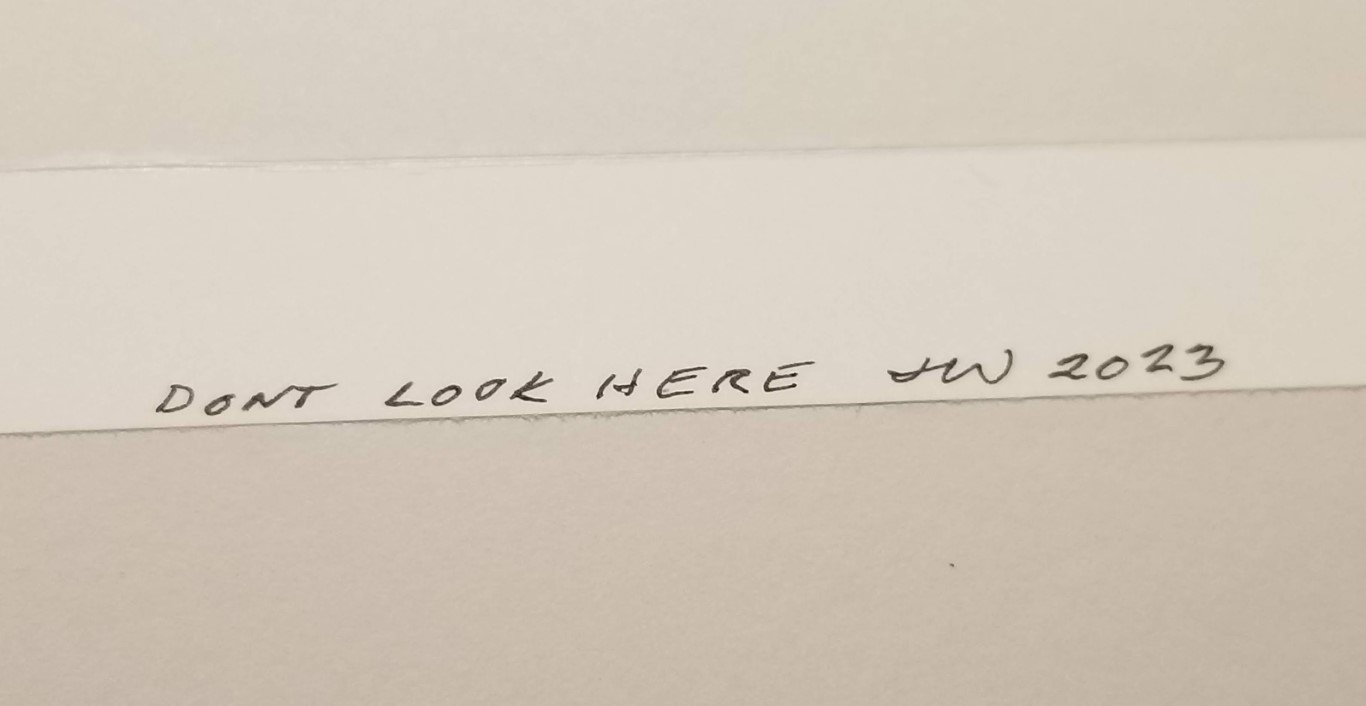 DONT LOOK HERE JW 2023